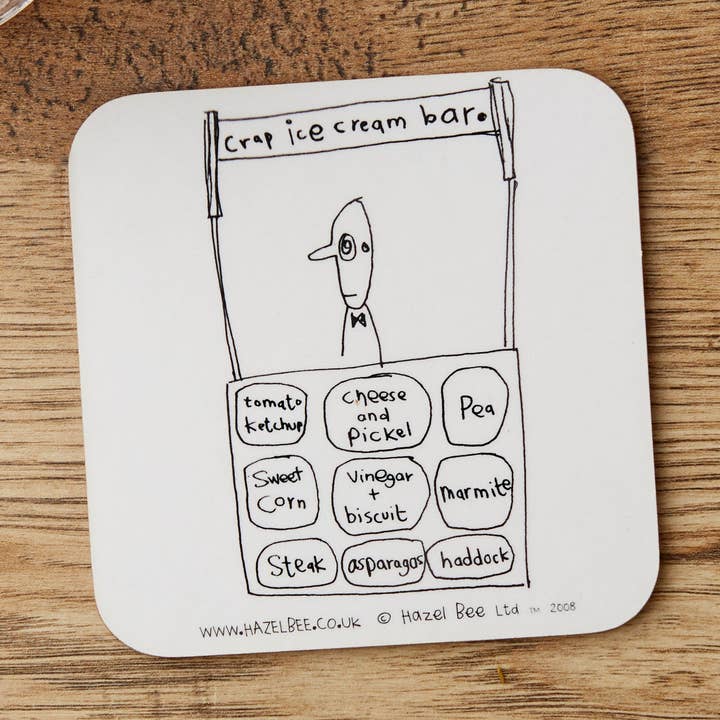 crap ice cream bar.
tomato
ketchup
cheese
and
pickel
Pea
Sweet
Corn
Vinegar
+
biscuit
marmite
Steak
asparagos
haddock
WWW.HAZELBEE.CO.UK © Hazel Bee Ltd ™ 2008